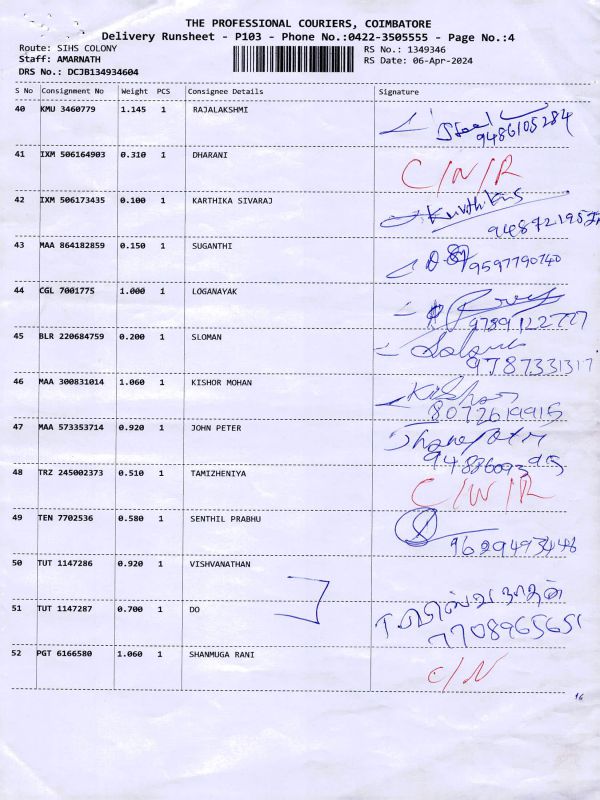 THE PROFESSIONAL COURIERS, COIMBATORE
Delivery Runsheet - P103 - Phone No.:0422-3505555 - Page No.:4
Route: SIHS COLONY RS No.: 1349346
Staff: AMARNATH RS Date: 06-Apr-2024
DRS No.: DCJB134934604
S No Consignment No Weight PCS Consignee Details Signature
40 KMU 3460779 1.145 1 RAJALAKSHMI
9486105284
41 IXM 506164903 0.310 1 DHARANI C/N/R
42 IXM 506173435 0.100 1 KARTHIKA SIVARAJ
43 MAA 864182859 0.150 1 SUGANTHI 9597790740
44 CGL 7001775 1.000 1 LOGANAYAK
9789122727
45 BLR 220684759 0.200 1 SLOMAN
9787331317
46 MAA 300831014 1.060 1 KISHOR MOHAN Kishor
8072619915
47 MAA 573353714 0.920 1 JOHN PETER
48 TRZ 245002373 0.510 1 TAMIZHENIYA C/N/R
49 TEN 7702536 0.580 1 SENTHIL PRABHU
9629493446
50 TUT 1147286 0.920 1 VISHVANATHAN
51 TUT 1147287 0.700 1 DO
7708965651
52 PGT 6166580 1.060 1 SHANMUGA RANI C/N
16